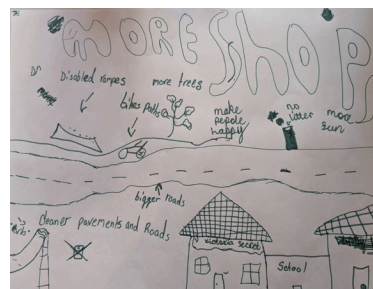 MORE SHOP
Disabled rampes
more trees
bikes Paths
make
pepole
happy
no
litter
more
sun
bigger roads
cleaner pavements and Roads
victoria secret
School